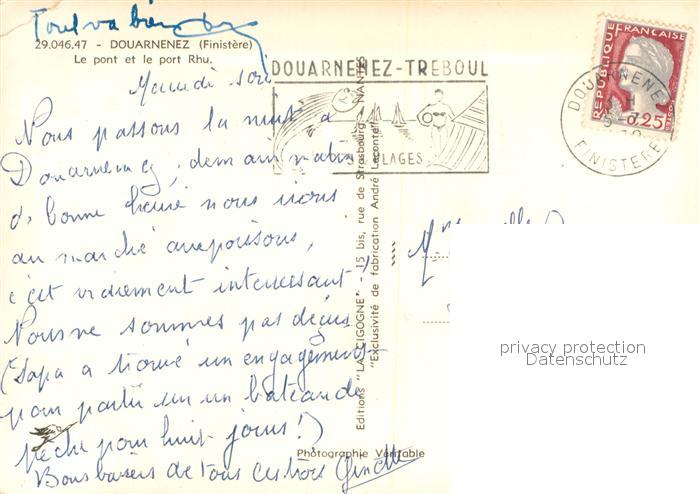 Tout va bien
29.046.47 - DOUARNENEZ (Finistère)
Le pont et le port Rhu.
soir
Nous passons la nuit à
Douarnenez, demain matin
de bonne heure nous irons
au marché aux poissons,
c'est vraiment intéressant,
Nous ne sommes pas déçus
(Papa a trouvé un engagement
pour partir sur un bateau de
pêche pour huit jours !)
Bons baisers de tous ces trois Ginette
DOUARNENEZ-TREBOUL
PLAGES
Editions "LA CIGOGNE" - 15 bis, rue de Strasbourg - NANTES
"Exclusivité de fabrication André Leconte"
Photographie Véritable
REPUBLIQUE FRANÇAISE
0,25
DOUARNENEZ
FINISTERE
privacy protection
Datenschutz